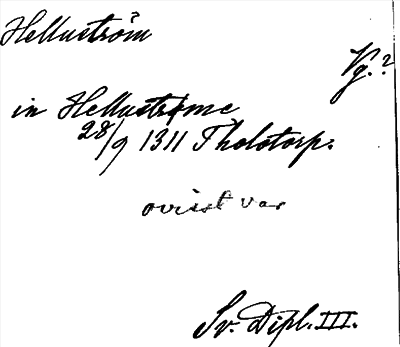 Helluström
Vg.?
in Hellustrøme
28/9 1311 Tholstorp.
ovisst var
Sv. Dipl. III.